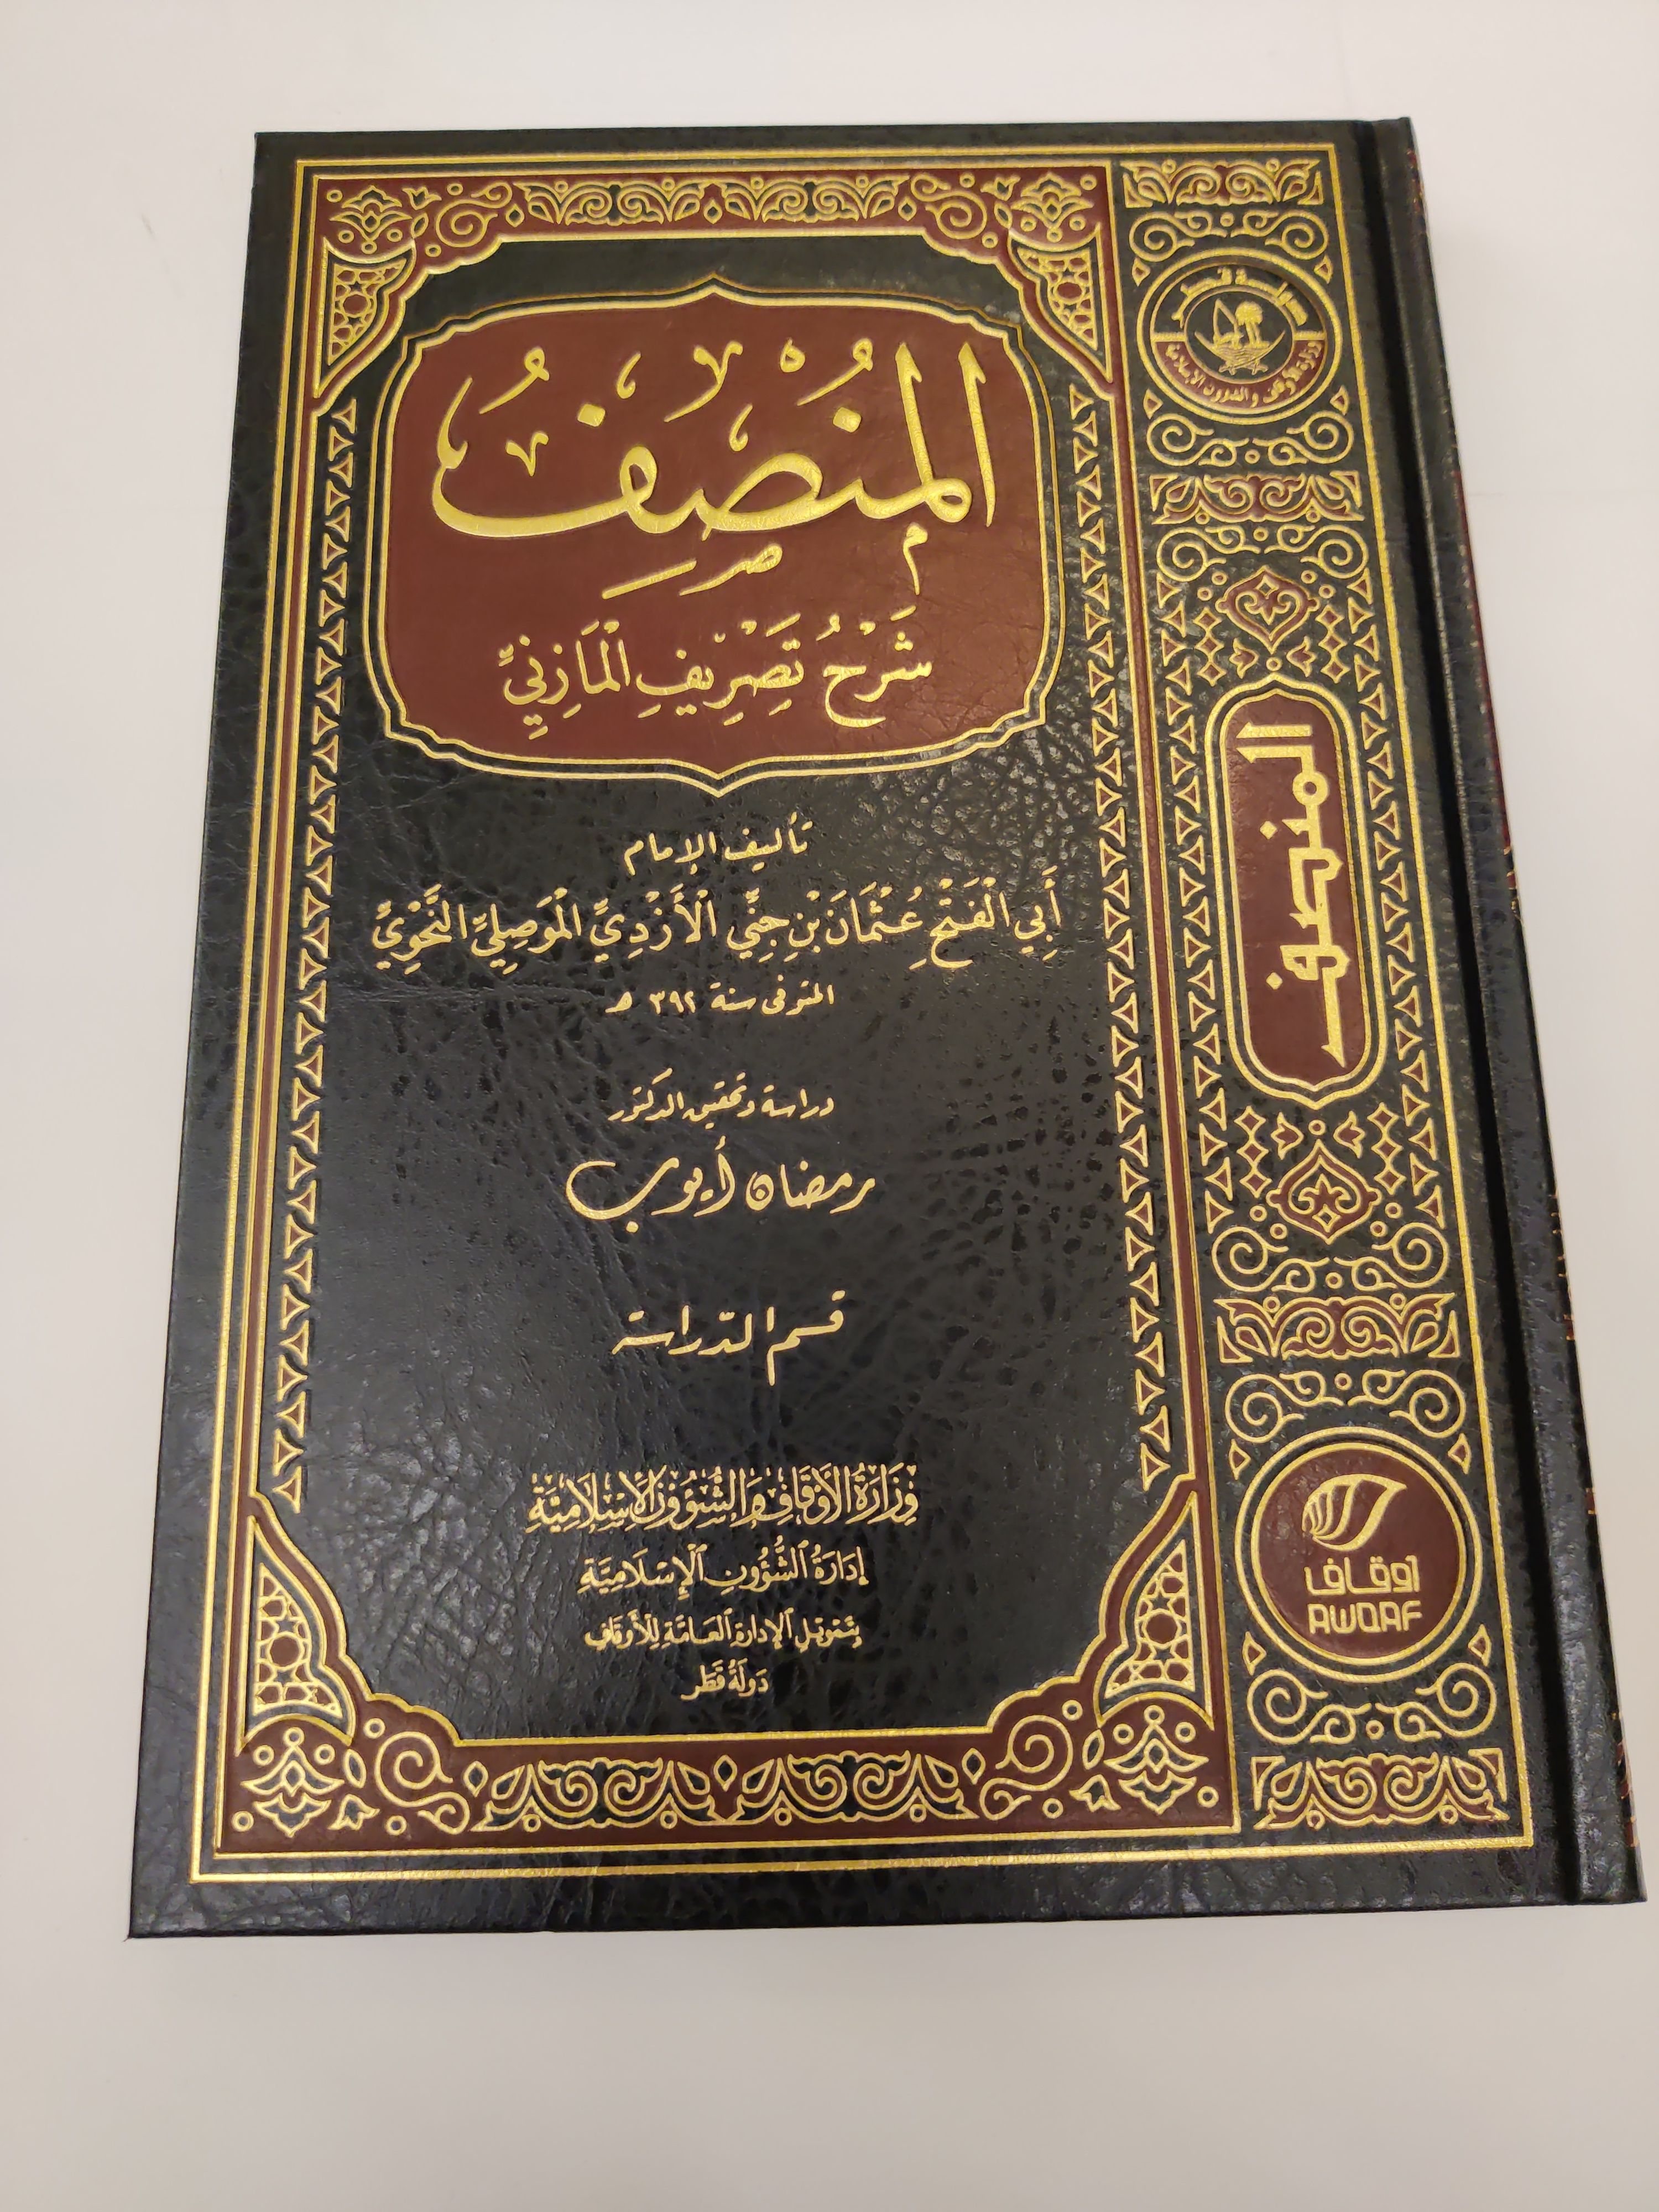 المُنْصِفُ
شَرْحُ تَصْرِيفِ الْمَازِنِيِّ
تأليف الإمام
أَبِي الْفَتْحِ عُثْمَانَ بْنِ جِنِّي الْأَزْدِيِّ الْمَوْصِلِيِّ النَّحْوِيِّ
المتوفى سنة ٣٩٢ هـ
دراسة وتحقيق الدكتور
رمضان أيوب
قسم الدّراسة
وَزَارَةُ الأَوْقَافِ وَالشُّؤُونِ الإِسْلَامِيَّةِ
إِدَارَةُ الشُّؤُونِ الإِسْلَامِيَّةِ
بتَمْويل الإدَارة العَامَّة لِلأَوقَاف
دَولَةُ قَطَر
دولة قطر
وزارة الأوقاف والشؤون الإسلامية
المنصف
أوقاف
AWQAF